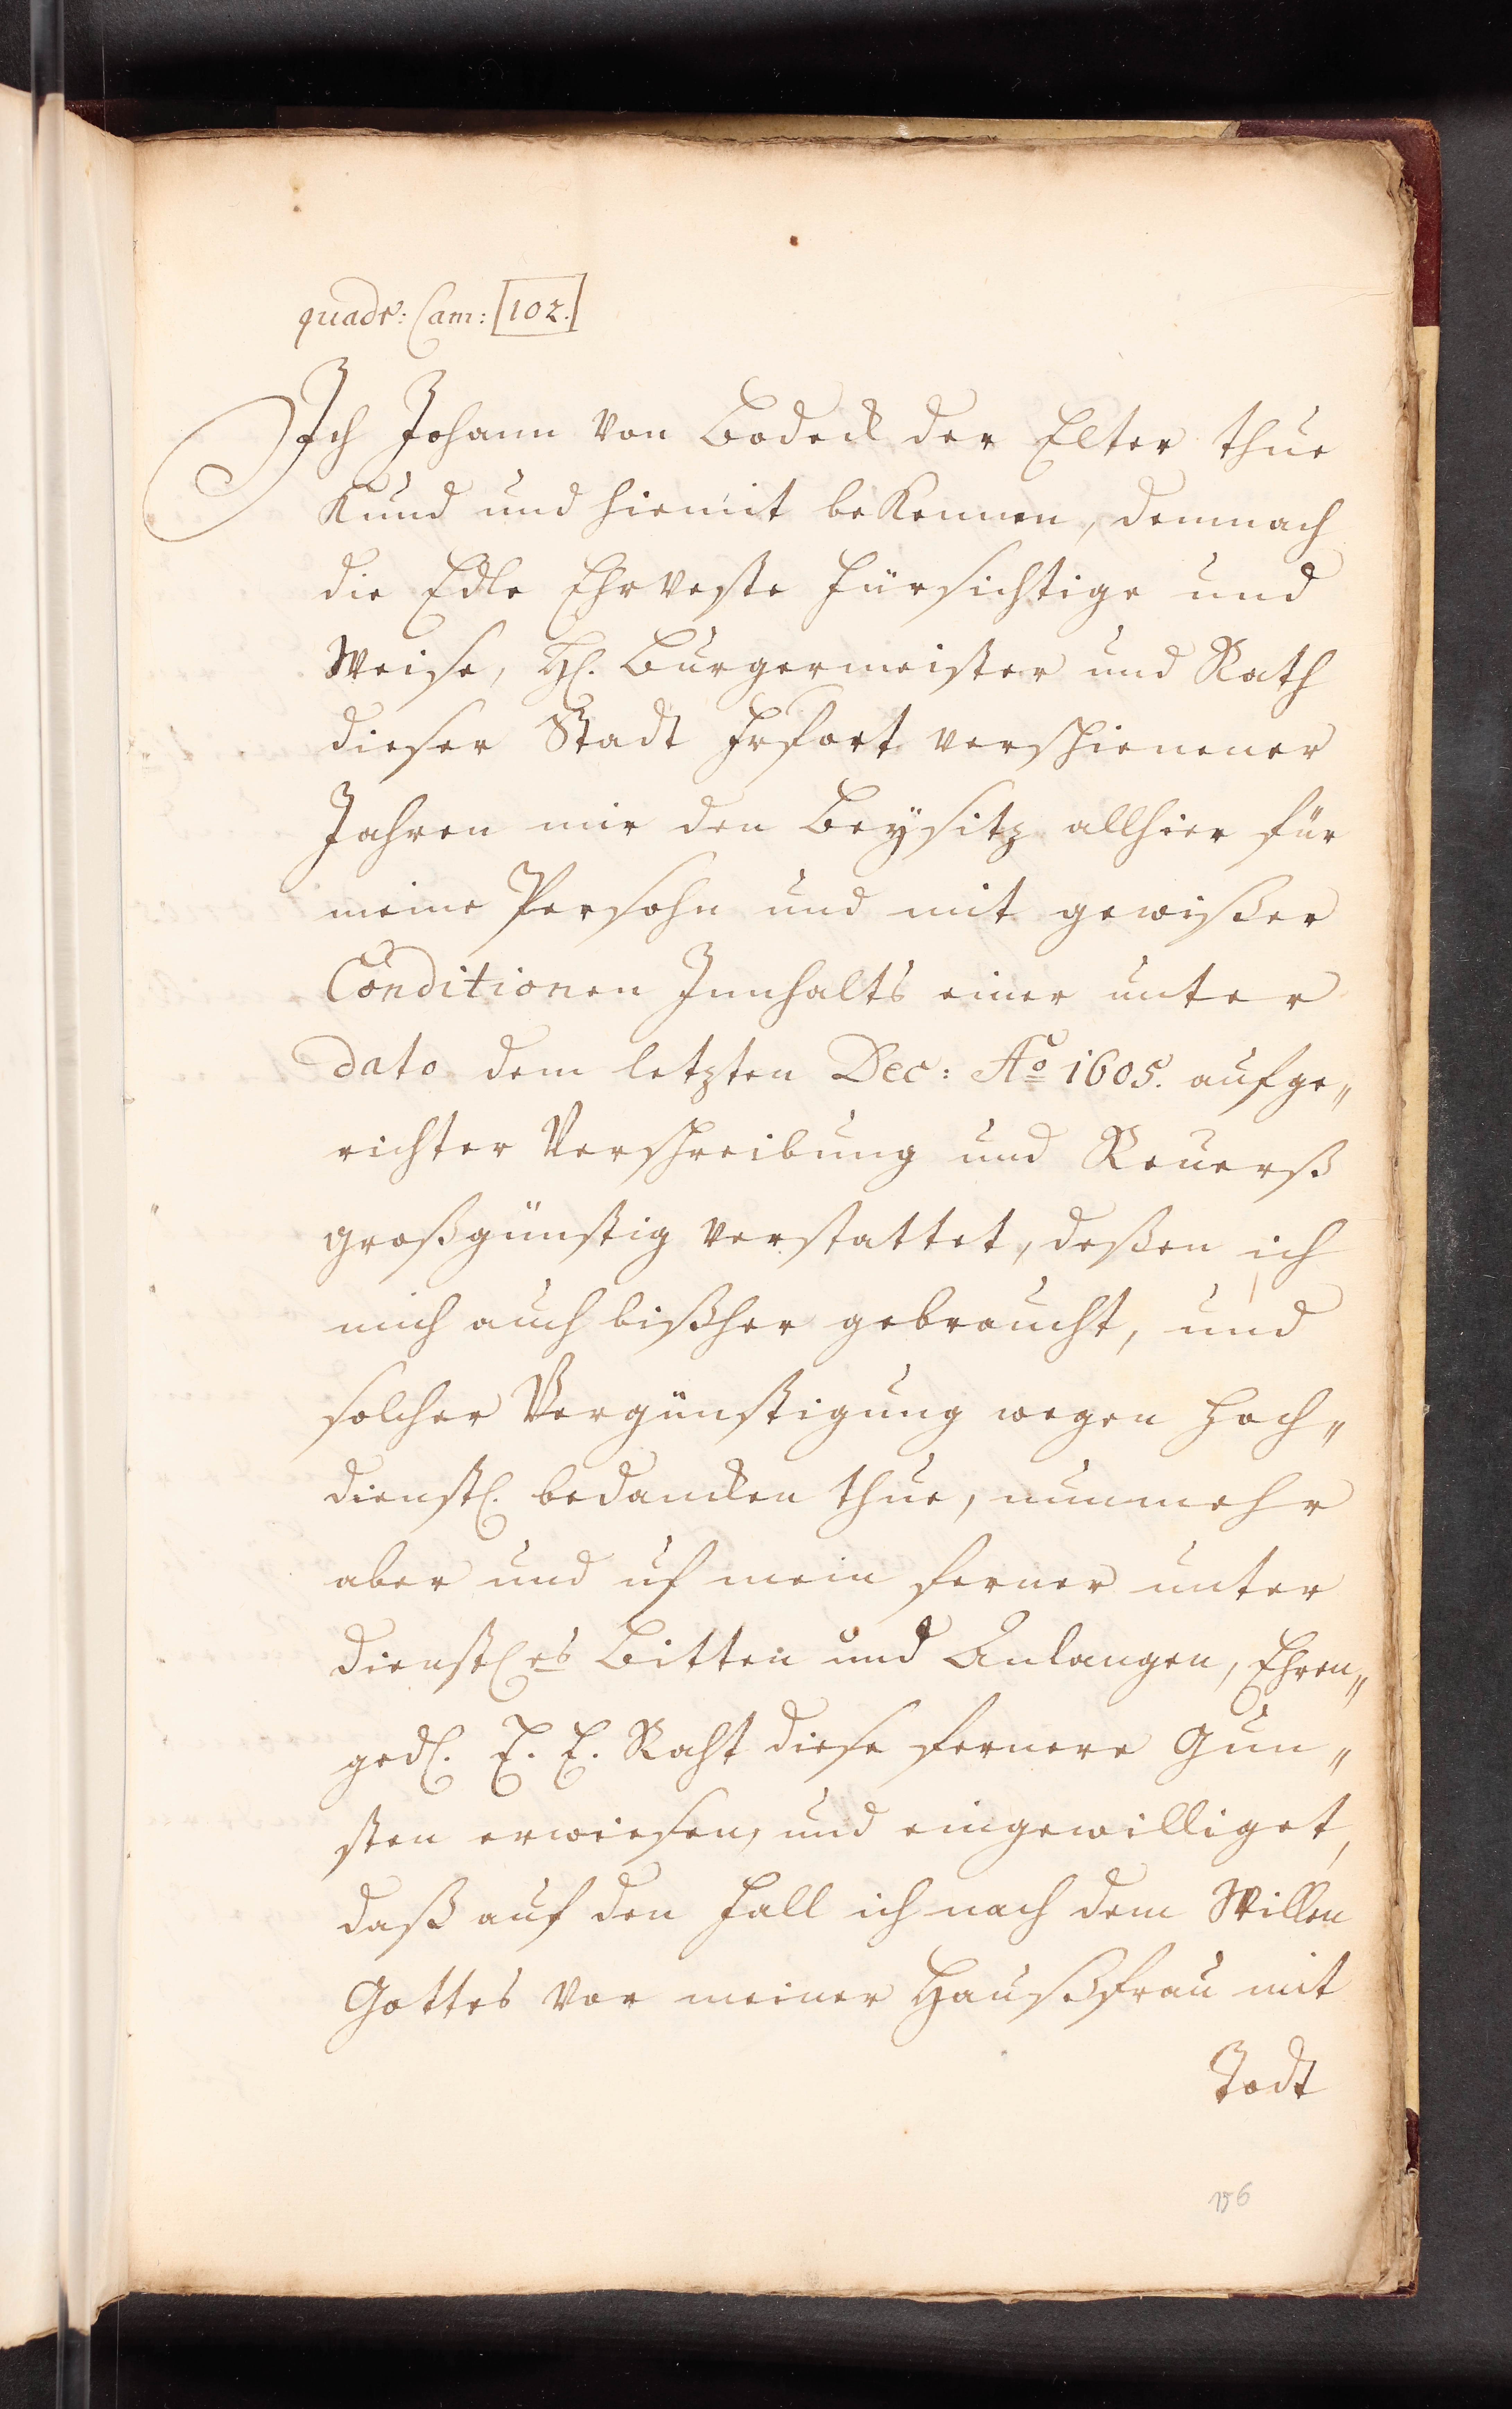 quadr: Cam: [102.]
Ich Johann von Bodeck der Elter thue
Kund und hiemit bekennen, demnach
die Edle Ehrveste Fürsichtige und
Weise, H. Burgermeister und Rath
dieser Stadt Frfort verschienener
Jahren mir den Beysitz allhier für
meine Persohn und mit gewißer
Conditionen Innhalts einer unter
dato dem letzten Dec: Ao 1605. aufge„
richter Verschreibung und Reuerß
großgünstig verstattet, deßen ich
mich auch bißher gebraucht, und
solcher Vergünstigung wegen Hoch„
dienstl. bedancken thue, nunmehr
aber und uf mein ferner unter
dienstl.es Bitten und Anlangen, Ehren„
gedl. E. E. Raht diese fernere Gun„
sten erwiesen, und eingewilliget,
daß auf den Fall ich nach dem Willen
Gottes vor meiner Haußfrau mit
Todt
156